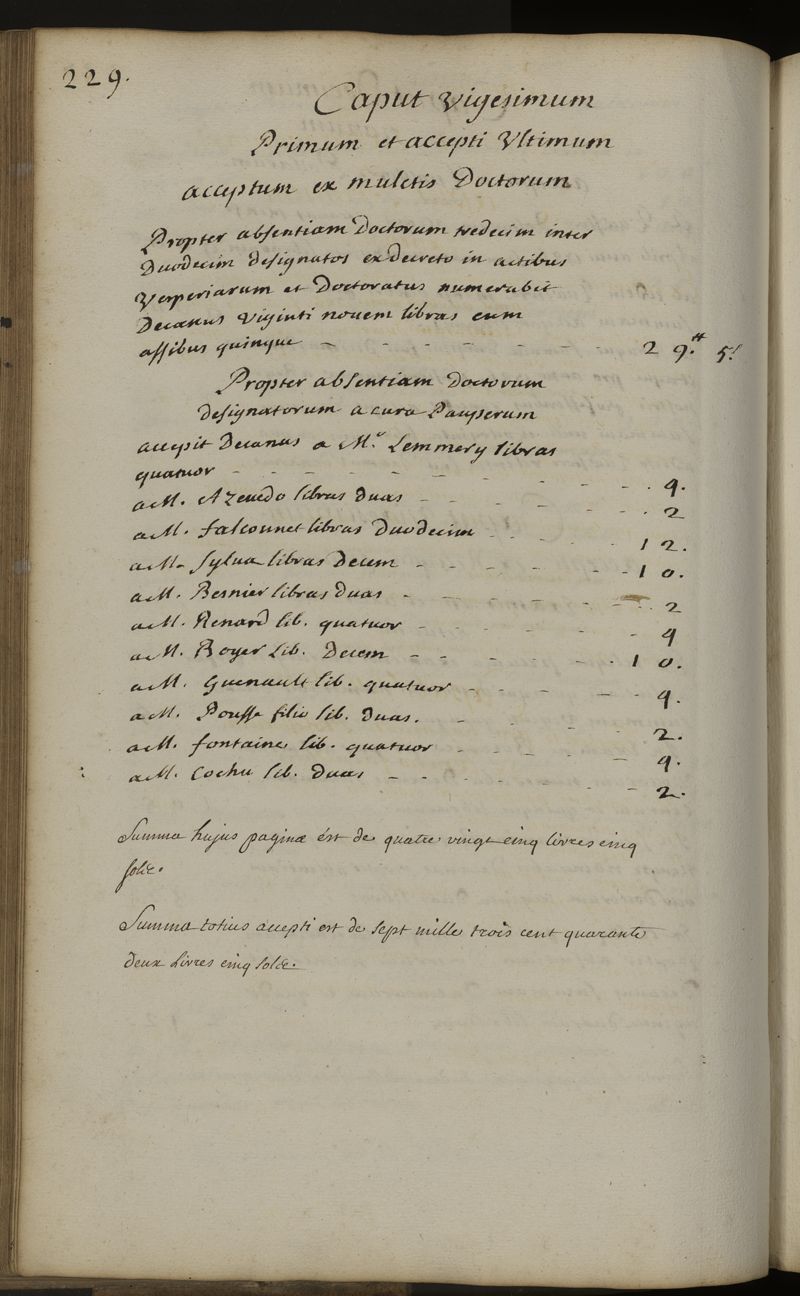 229.
Caput Vigesimum
Primum et accepti Vltimum
acceptum ex mulctis Doctorum
Propter absentiam Doctorum tredecim inter
Duodecim designatos ex Decreto in actibus
Vesperiarum et Doctoratus numerabit
Decanus Viginti novem libras cum
assibus quinque - - - - - - - 29.tt 5.s
Propter absentiam Doctorum
designatorum a cura Pauperum
accepit Decanus a Mr. Lemmery libras
quatuor - - - - - - - - - 4.
a M. Azevedo libras duas - - - - - - 2
a M. falconnet libras Duodecim - - - - 12.
a M. Sylva libras Decem - - - - - - 10.
a M. Besnier libras duas - - - - - 2
a M. Renard lib. quatuor - - - - - - 4
a M. Boyer Lib. Decem - - - - - - 10.
a M. Guenault lib. quatuor - - - - - 4.
a M. Pousse filio lib. duas. - - - - 2.
a M. fontaine lib. quatuor - - - - - 4.
a M. Cochu lib. duas - - - - - - 2.
Summa hujus paginæ ést de quatre vingt cinq livres cinq
solz.
Summa totius accepti est de sept mille trois cent quarante
deux Livres cinq solz.